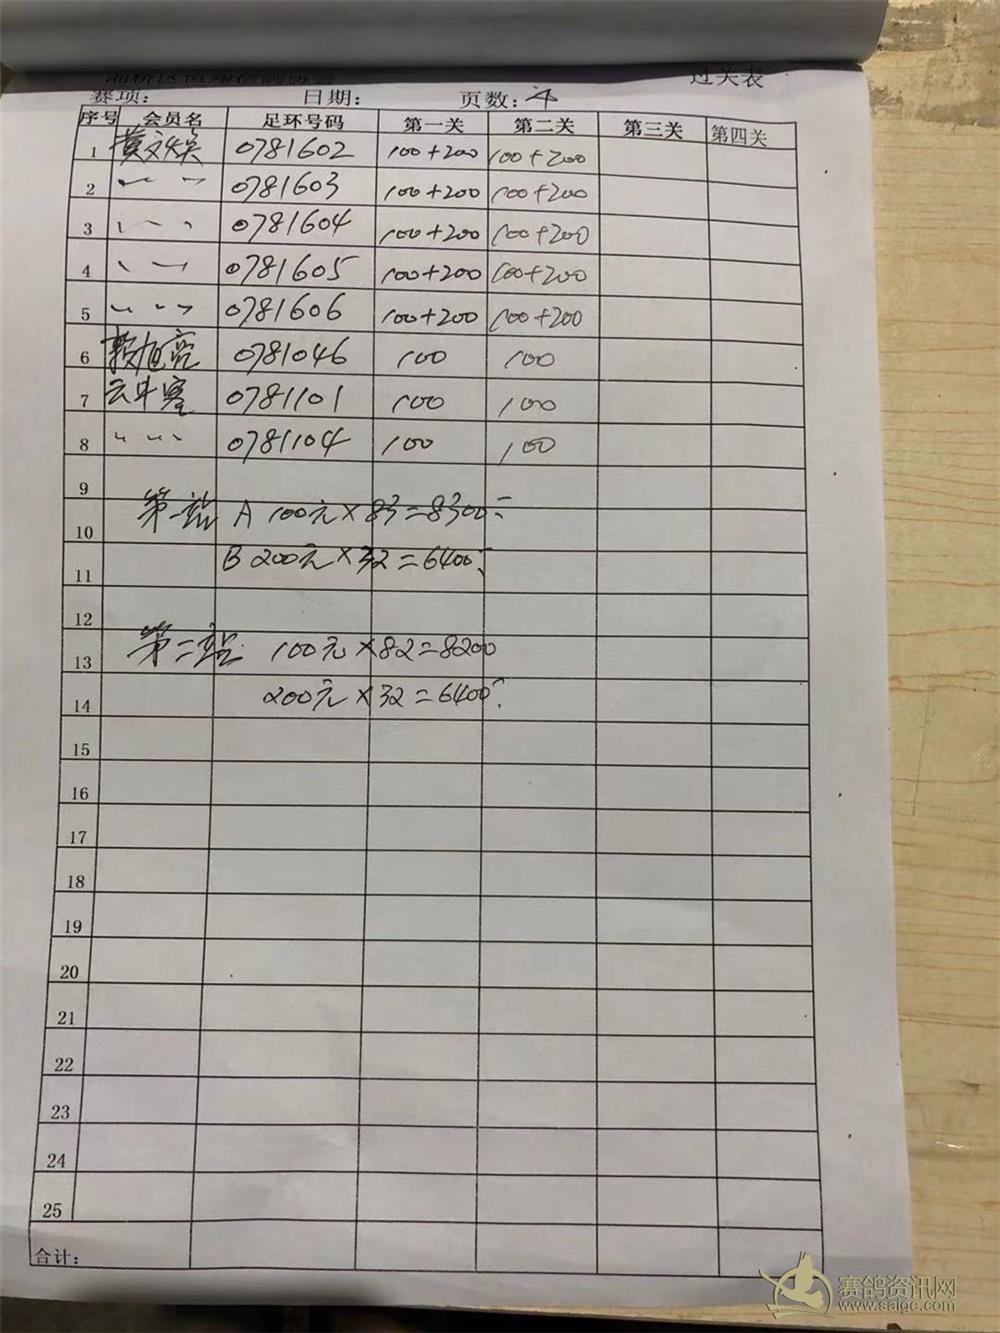 过关表
赛项： 日期： 页数：4
序号 会员名 足环号码 第一关 第二关 第三关 第四关
1 黄文焕 0781602 100+200 100+200
2 〃 〃 0781603 100+200 100+200
3 〃 〃 0781604 100+200 100+200
4 〃 〃 0781605 100+200 100+200
5 〃 〃 〃 0781606 100+200 100+200
6 旭亮 0781046 100 100
7 0781101 100 100
8 〃 〃 〃 0781104 100 100
9
第一站 A 100元×83=8300元
10
B 200元×32=6400元
11
12
13 第二站 100元×82=8200
14 200元×32=6400元
15
16
17
18
19
20
21
22
23
24
25
合计：
赛鸽资讯网
www.saigc.com